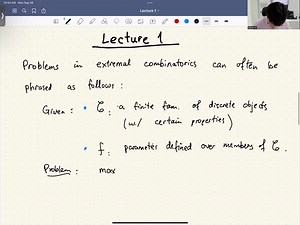 Lecture 1
Lecture 1
Problems in extremal combinatorics can often be
phrased as follows :
Given : • C : a finite fam. of discrete objects
(w/ certain properties)
• f : parameter defined over members of C.
Problem : max